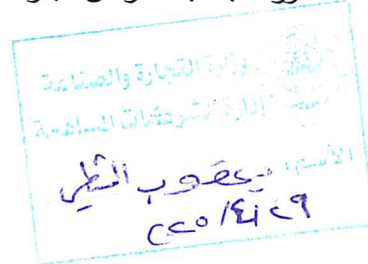 وزارة التجارة والصناعة
إدارة الشركات المساهمة
الاسم: يعقوب الشطي
٢٠٢٥/٤/٢٩